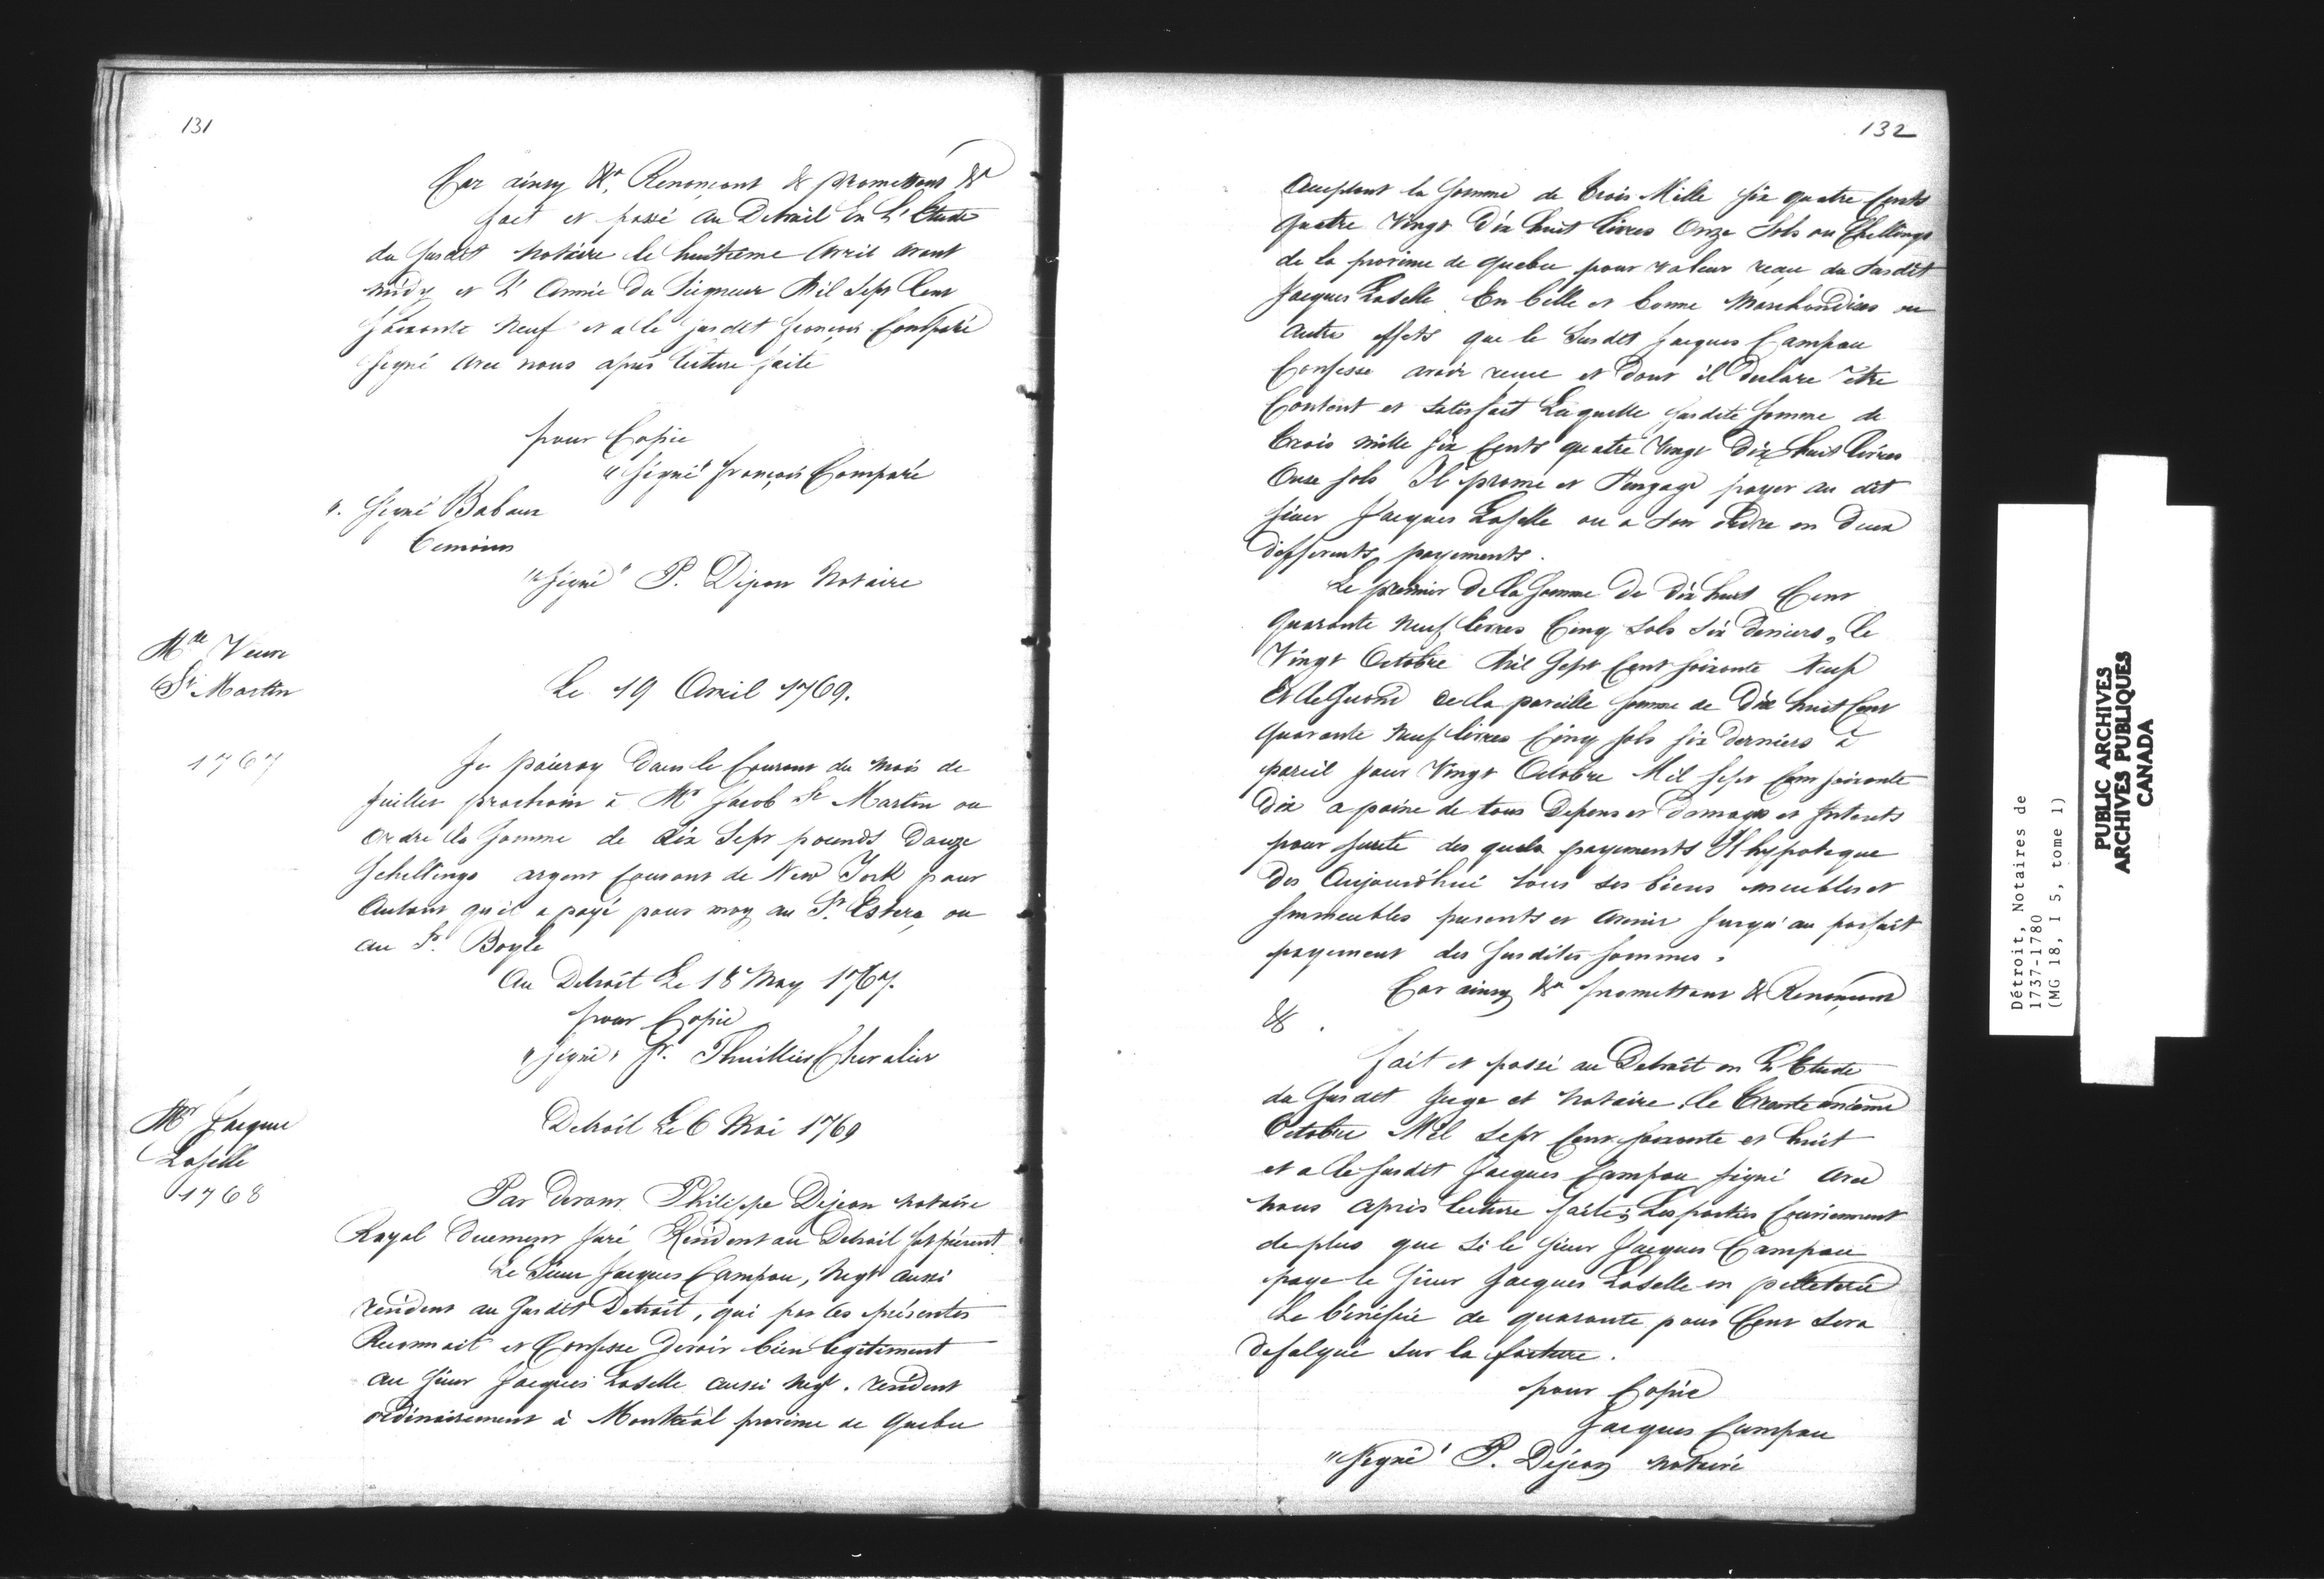 131
Car ainsy &a. Renonçant & promettant &a
fait et passé au Detroit En L'Etude
du susdit Notaire le huitieme Avril avant
midy et L'Année Du Seigneur Mil Sept Cent
Soixante Neuf et a le susdit françois Comparé
Signé avec nous après lecture faite
pour Copie
"Signé" françois Comparé
". Signé Babaux
Temoins
"Signé" P. Dejean Notaire
Mde Veuve
St Martin
Le 19 Avril 1769.
1767
Je paieray Dans le Courant du mois de
Juillet prochain à Mr Jacob St Martin ou
Ordre la Somme de dix Sept pounds Douze
Schellings argent Courant de New York pour
Autant qu'il a payé pour moy au Sr. Estere, ou
au Sr. Boyle
Au Detroit Le 18 May 1767.
pour Copie
"Signé" Jr. Thuillier Chevalier
Mr Jacque
Laselle
1768
Detroit Le 6 Mai 1769
Par devant Philippe Dejean notaire
Royal Duement Juré Résident au Detroit fut présent
Le Sieur Jacques Campau, Negt aussi
résident au susdit Detroit, qui par les présentes
Reconnait et Confesse Devoir bien legitiment
au Sieur Jacques Laselle aussi Negt. résident
ordinairement à Montréal province de Quebec
132
Acceptant la Somme de trois Mille six quatre Cents
quatre Vingt Dix huit livres Onze Sols ou Chellings
de la province de Quebec pour valeur reçu du Susdit
Jacques Laselle En belle et bonne Marchandises ou
autre effets que le Susdit Jacques Campau
Confesse avoir reçue et Dont il Declare être
Content et Satisfait Laquelle susdite Somme de
trois mille Six Cents quatre Vingt Dix huit livres
Onze sols Il prome et S'engage payer au dit
Sieur Jacques Laselle ou a Son Ordre en Deux
differents payements.
Le premier De la Somme De dix huit Cent
Quarante Neuf livres Cinq Sols Six Deniers, le
Vingt Octobre Mil Sept Cent Soixante Neuf
Et le Second de la pareille Somme de Dix huit Cent
Quarante Neuf livres Cinq Sols Six Derniers à
pareil Jour Vingt Octobre Mil Sept Cent Soixante
Dix a paine de tous Depens et Damages et Interets
pour sureté des quels payements Il hypoteque
Des Aujourd'hui tous ses biens meubles et
Immeubles presents et avenir Jusqu'au parfait
payement des susdites Sommes.
Car ainsy &a promettant & Renonçant
&.
fait et passé au Detroit en L'Etude
du Susdit Juge et Notaire, le trente onzieme
Octobre Mil Sept Cent Soixante et huit
et a le susdit Jacques Campau signé avec
nous après lecture faite; Les parties Conviennent
de plus que Si le Sieur Jacques Campau
paye le Sieur Jacques Laselle en pelleterie
Le bénéfice de quarante pour Cent Sera
défalqué Sur la facture.
pour Copie
Jacques Campau
"Signé" P. Dejean Notaire
Détroit, Notaires de
1737-1780
(MG 18, I 5, tome 1)
PUBLIC ARCHIVES
ARCHIVES PUBLIQUES
CANADA